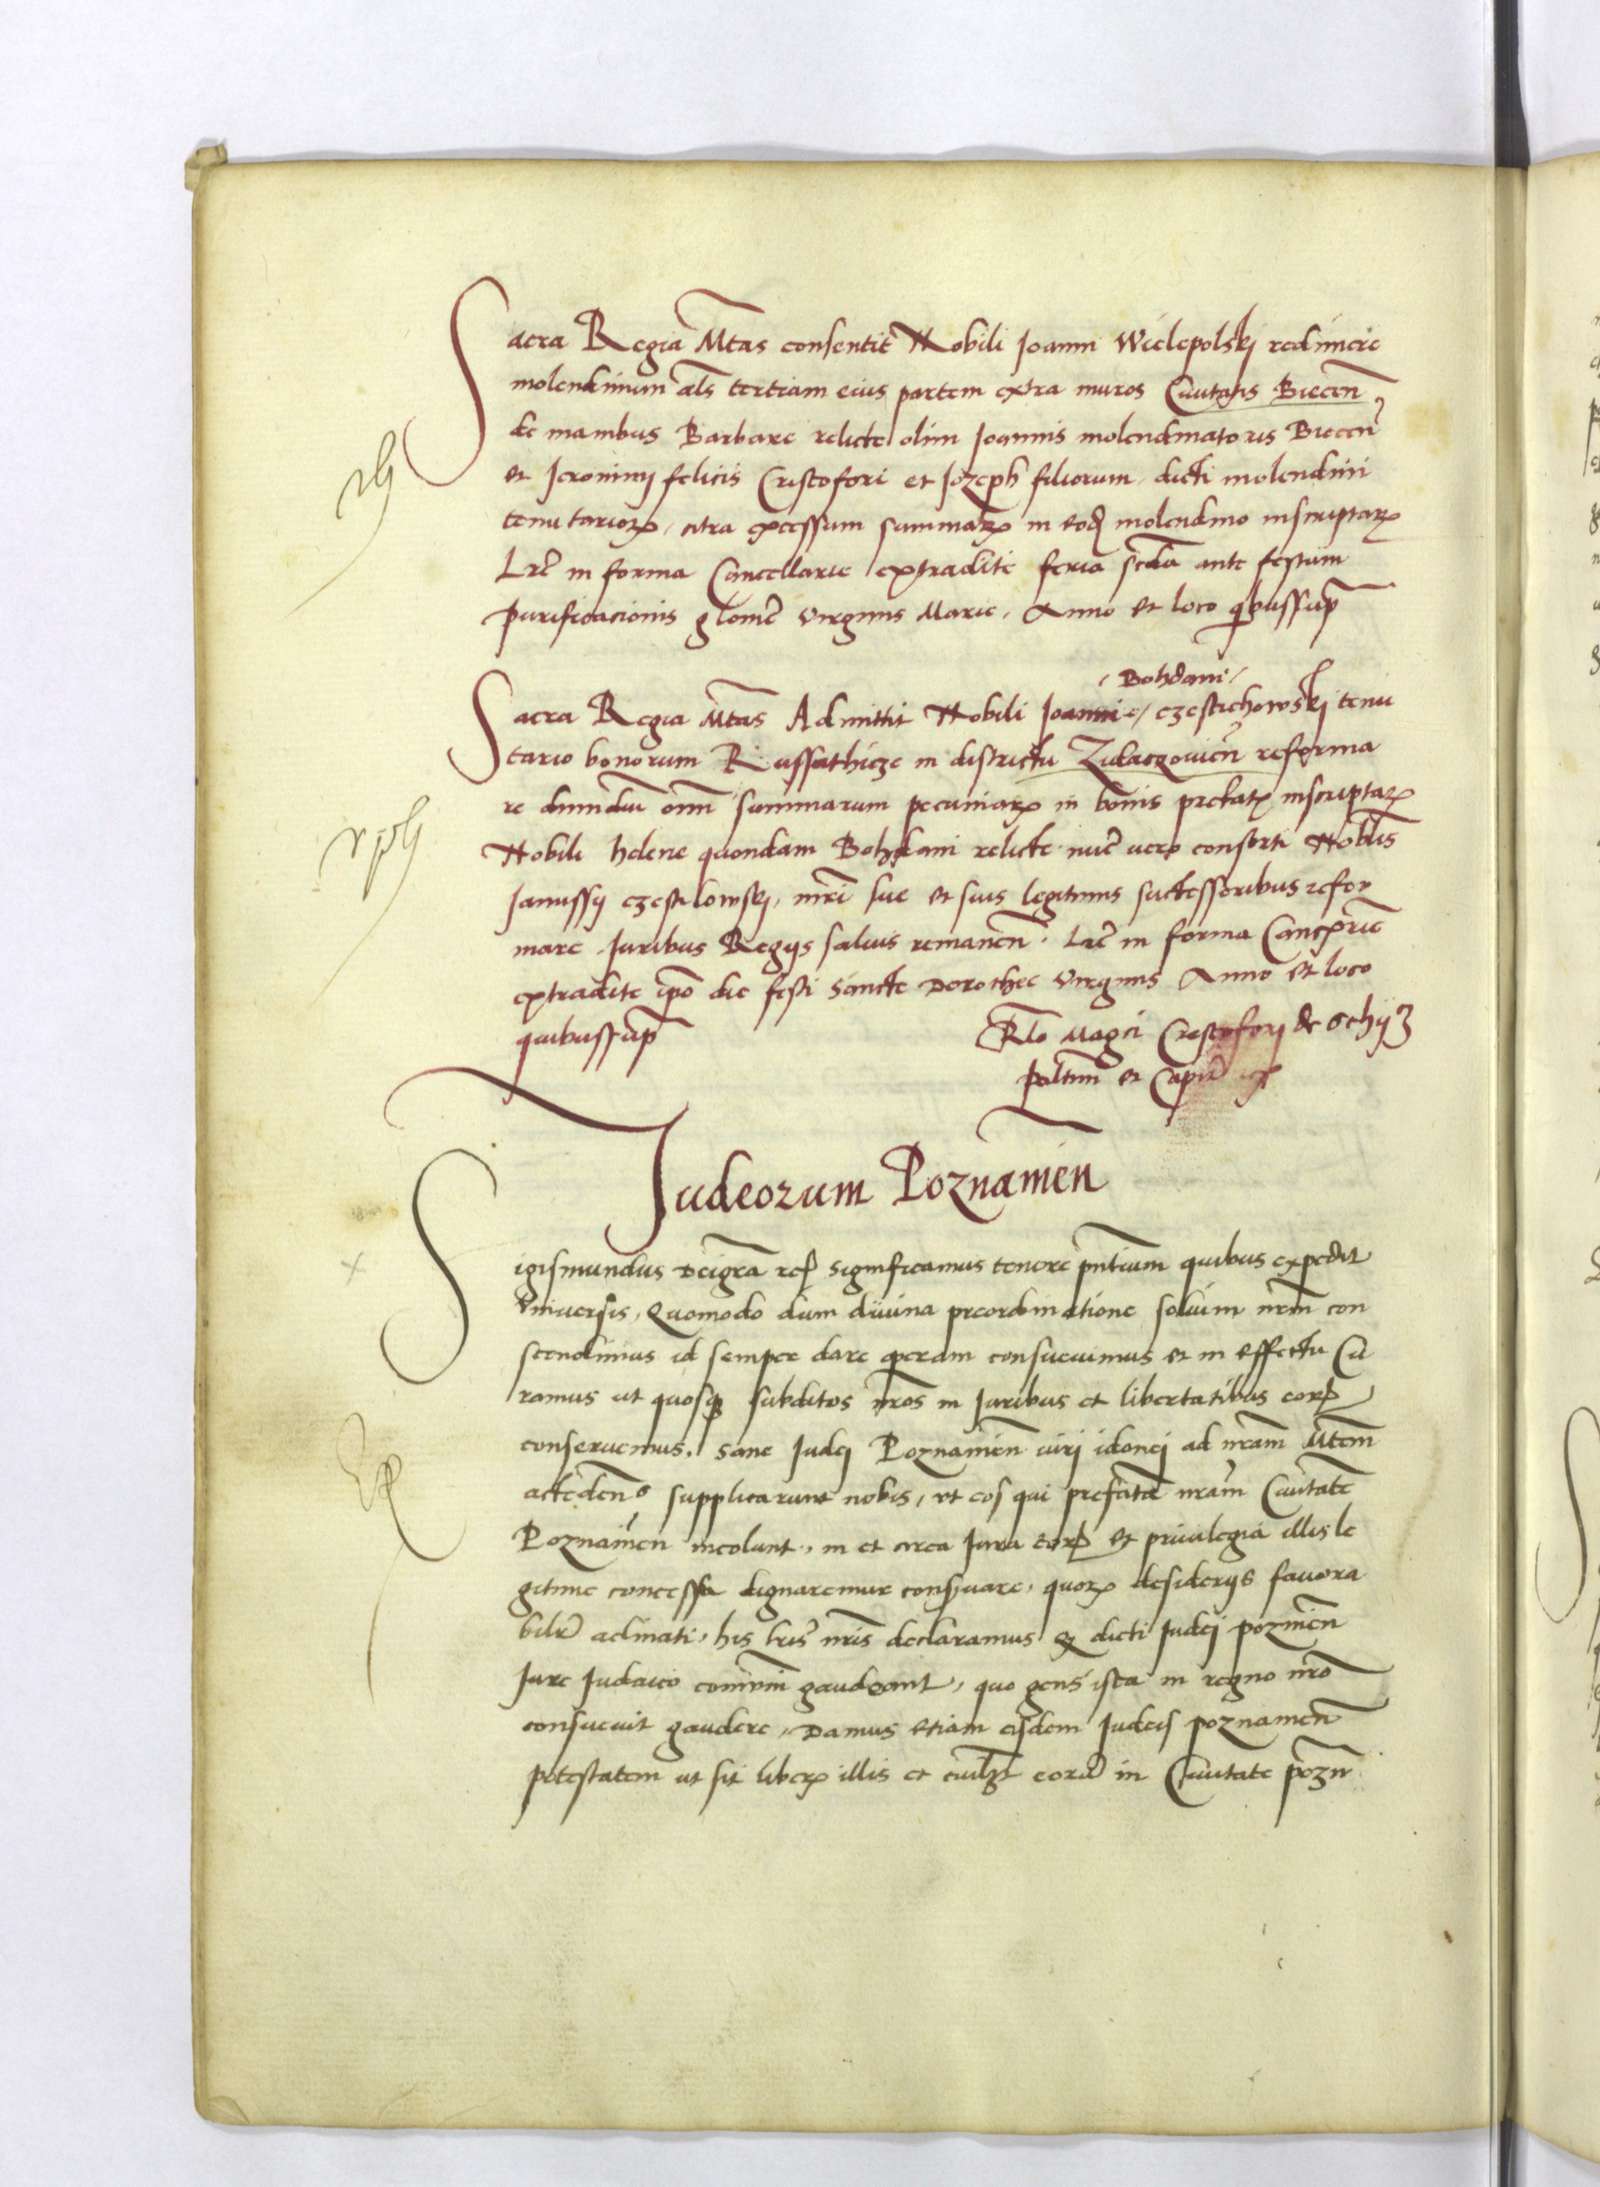 Sacra Regia Mtas consentit Nobili Joanni Wielepolskj redimere
molendinum als tertiam eius partem extra muros Civitatis Biecen
de manibus Barbare relicte olim Joannis molendinatoris Biecen
et Jeronimj felicis Cristofori et Jozeph filiorum dicti molendini
tenutariorꝝ, citra excessum summarꝝ in eod molendino inscriptarꝝ
Lre in forma Cancellarie extradite feria scda ante festum
purificacionis gloriose virginis Marie, Anno et loco quibussup
Bohdani
Sacra Regia Mtas Admittit Nobili Joannie czestichowskj tenu
tario bonorum Russathicze in districtu Zidaczovien reforma
re dimidiu omn summarum pecuniarꝝ in bonis prefat inscriptarꝝ
Nobili helene quondam Bohdani relicte nunc vero consorti Nobilis
Janussij czestilowskj, mri sue et suis legitimis successoribus refor
mare Juribus Regijs salvis remanen. Lre in forma Cancrie
extradite ipo die festi sancte Dorothee virginis Anno et loco
quibussup
Rlo Magci Crestoforj de schijdlowyecz
paltini et Capit
Judeorum Poznamen
Sigismundus Dei gra rex significamus tenore pntium quibus expedit
Universis, Quomodo dum divina preordinatione solium nrm con
scendimus id semper dare operam consuevimus et in effectu Cu
ramus ut quosq subditos nros in Juribus et libertatibus eorꝝ
conservemus, sane Judei Poznamien viri idonej ad nram Mtem
acceden supplicarunt nobis, ut eos qui prefata nram Civitate
Poznamien incolunt, in et circa Jura eorꝝ et privilegia illis le
gitime concessa dignaremur conservare, quorꝝ desiderijs favora
bilr aclinati, his lris nris declaramus qꝫ dicti Judei poznien
Jure Judaico comuni gaudeant, quo gens ista in regno nro
consuevit gaudere, Damus etiam eisdem Judeis poznamen
potestatem ut sit liberꝝ illis et cuilibet eoru in Civitate pozn